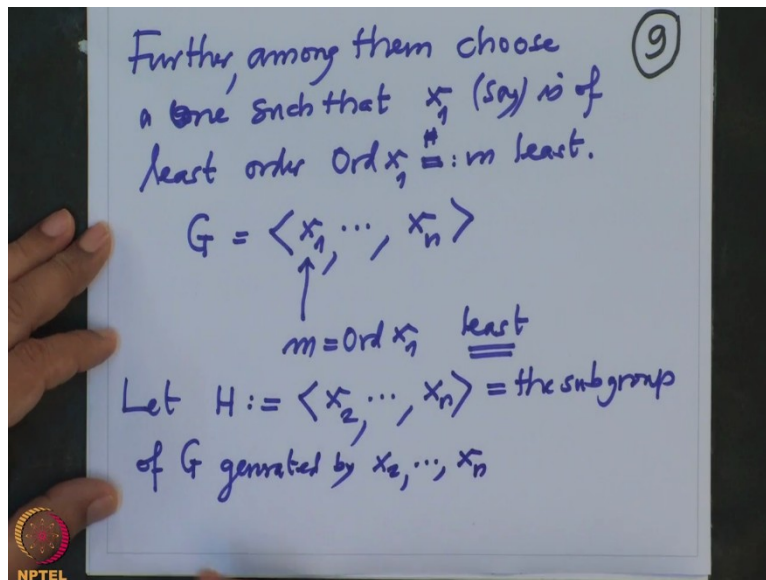 Further, among them choose
a one such that x₁ (say) is of
least order Ord x₁ =: m least.
G = ⟨x₁, ⋯, xₙ⟩
m = Ord x₁ least
Let H := ⟨x₂, ⋯, xₙ⟩ = the subgroup
of G genrated by x₂, ⋯, xₙ
9
NPTEL